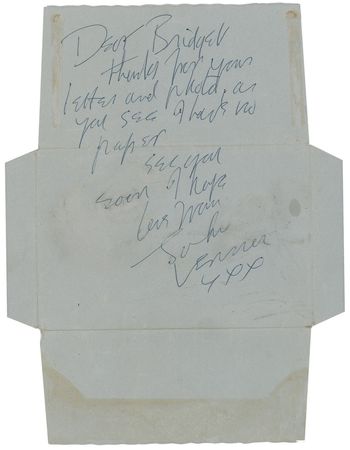 Dear Bridget
thanks for your
letter and photo, as
you see I have no
paper
see you
soon I hope
love from
John
Lennon
xxx